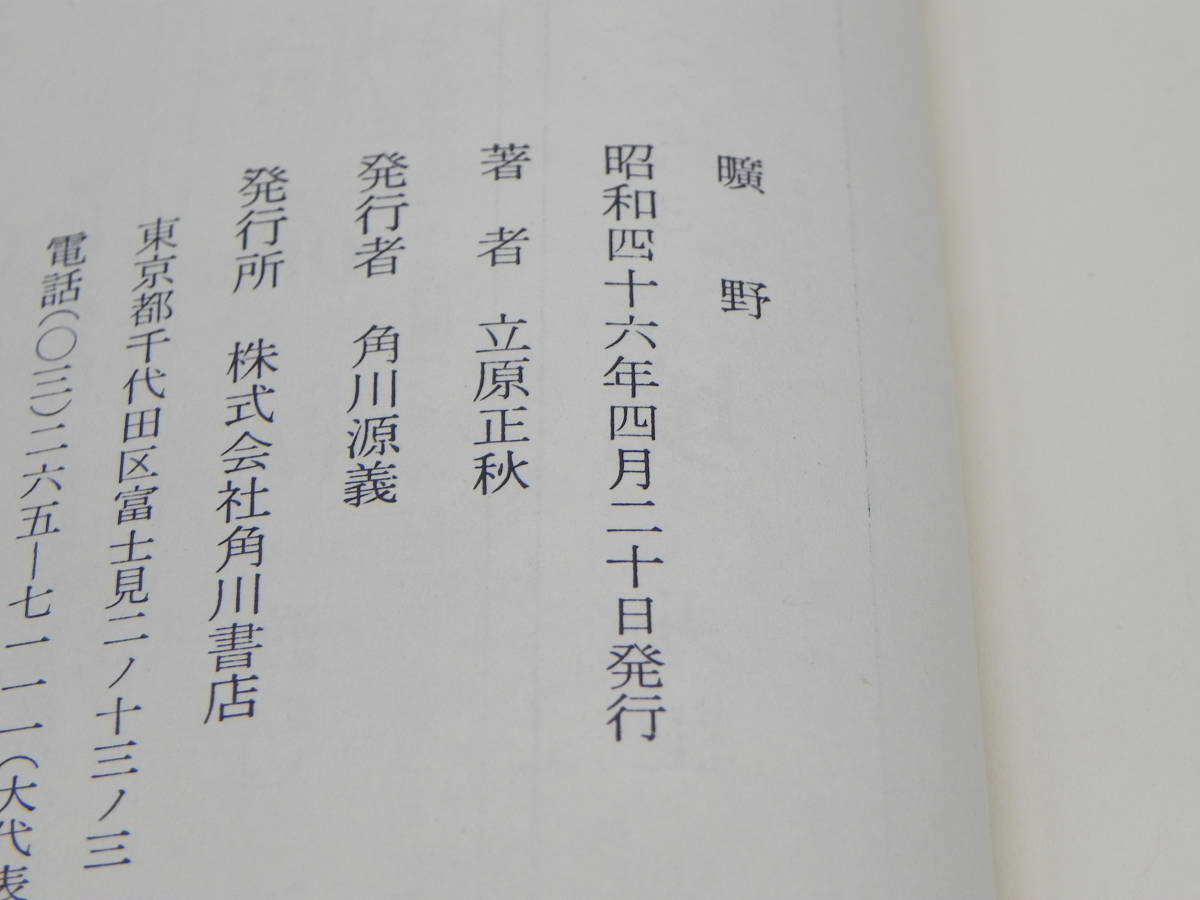 曠野
昭和四十六年四月二十日発行
著者 立原正秋
発行者 角川源義
発行所 株式会社角川書店
東京都千代田区富士見二ノ十三ノ三
電話(〇三)二六五―七一一一(大代表